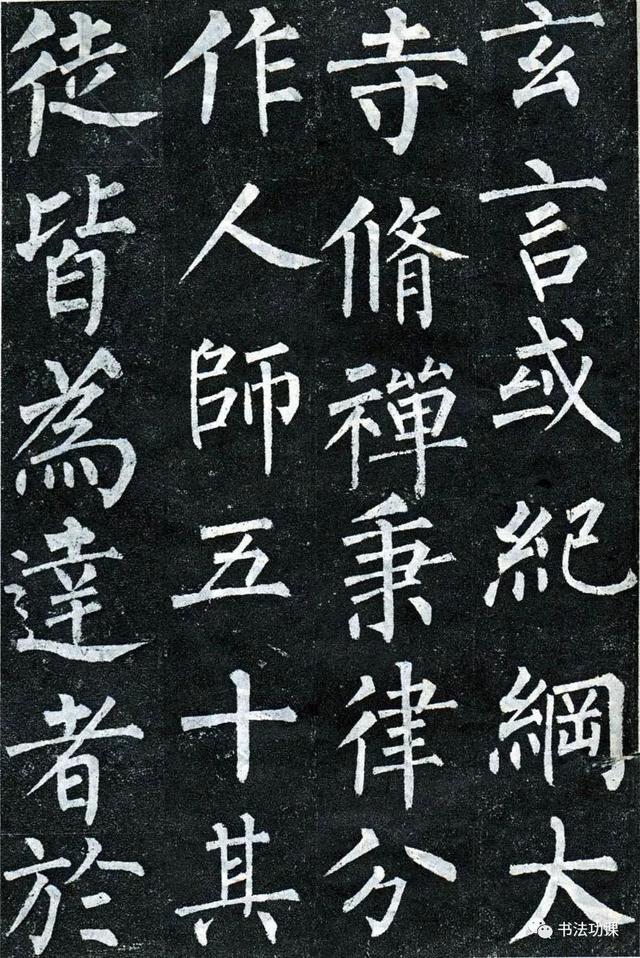 玄言或紀綱大
寺脩禪秉律分
作人師五十其
徒皆為達者於
书法功课